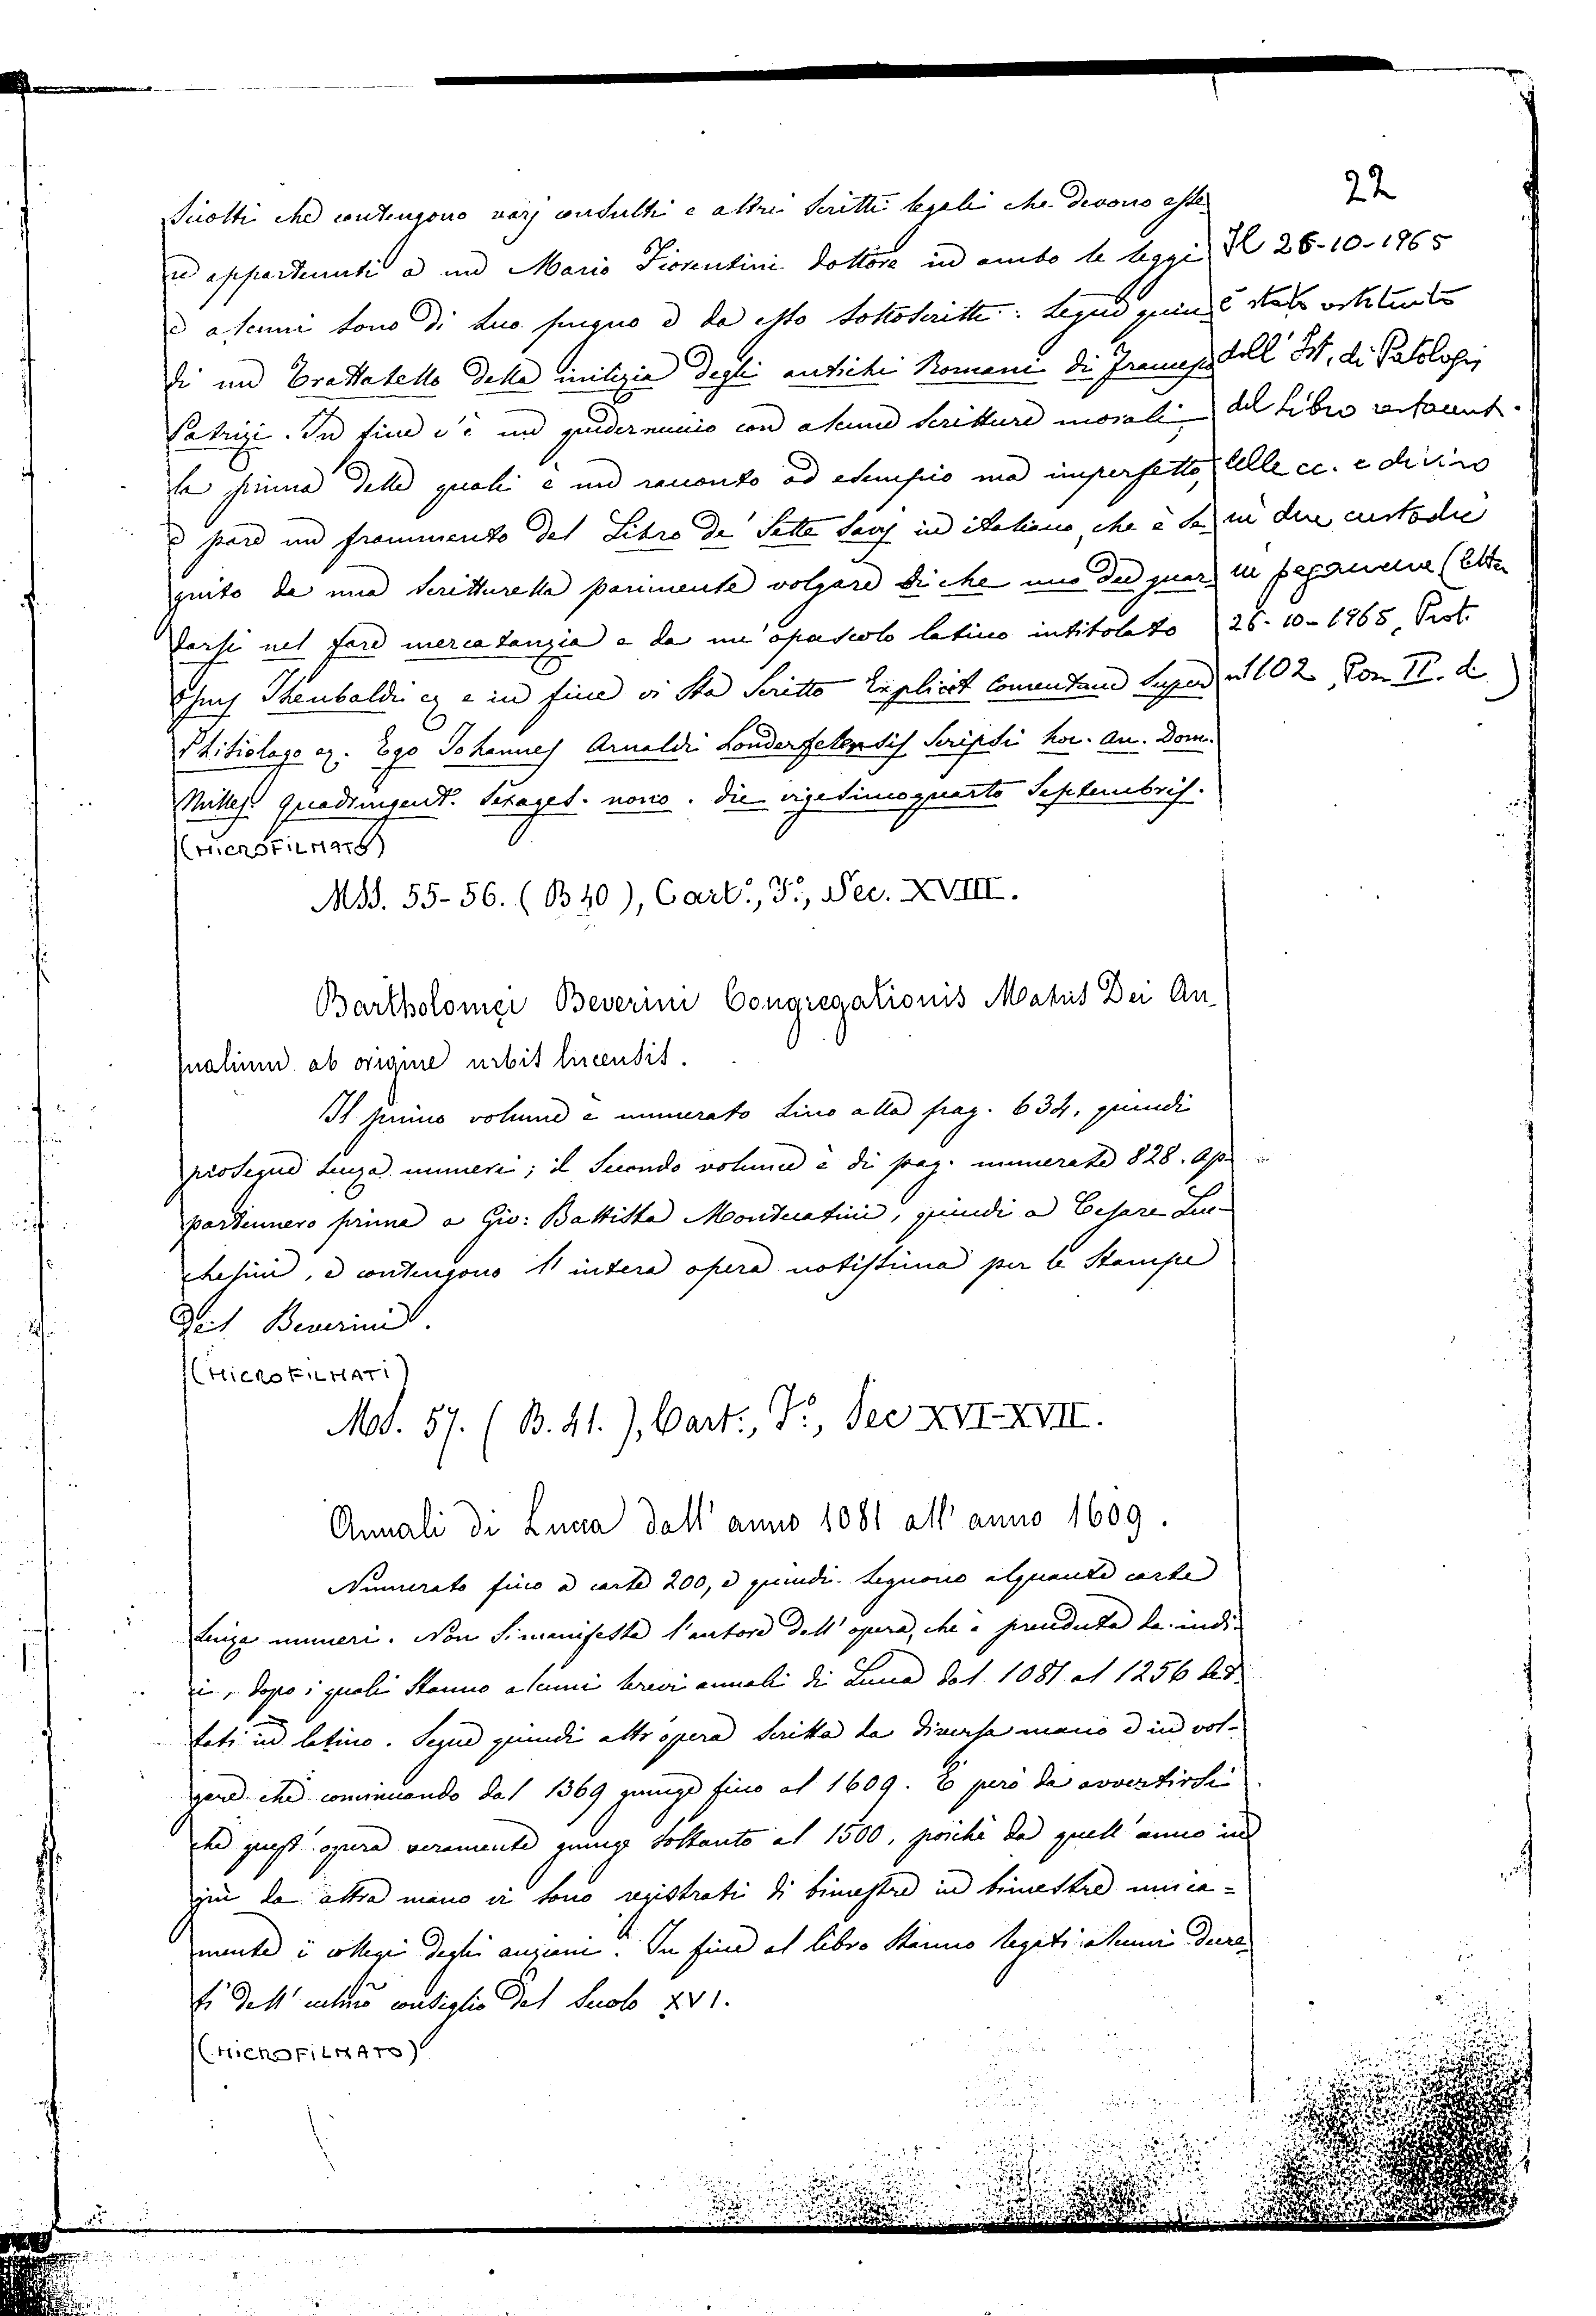 22
scritti che contengono varj consulti e altri scritti legali che devono esse
re appartenuti a un Mario Fiorentini dottore in ambo le leggi
e alcuni sono di suo pugno e da esso sottoscritti. Segue quin
di un Trattatello della milizia degli antichi Romani di Francesco
Patrizi. In fine v'è un quadernuccio con alcune scritture morali
la prima delle quali è un racconto ad esempio ma imperfetto,
e pare un frammento del Libro de' Sette Savj in italiano, che è se
guito da una scritturella parimente volgare di che uno dee guar
darsi nel fare mercatanzia e da un'opuscolo latino intitolato
Theubaldi ez e in fine vi sta scritto Explicit Comentum super
Phisiologo ez. Ego Johannes Arnaldi scripsi hoc. An. Dom.
Milles. quadringent. sexages. nono. die vigesimoquarto Septembris.
(MICROFILMATO)
Il 26-10-1965
è stato restituito
dall' Ist. di Patologia
del Libro
e diviso
in due custodie
in (lettera
26-10-1965, Prot.
n 1102, Pos II. d )
MSS. 55-56. (B 40), Cart.º, F.º, Sec. XVIII.
Bartholomęi Beverini Congregationis Matris Dei An_
nalium ab origine urbis lucensis.
Il primo volume è numerato sino alla pag. 634, quindi
prosegue senza numeri; il secondo volume è di pag. numerate 828. Ap
partennero prima a Gio: Battista Montecatini, quindi a Cesare Luc-
chesini, e contengono l'intera opera notissima per le stampe
del Beverini.
(MICROFILMATI)
Ms. 57. (B. 41.), Cart:, F.º, Sec XVI-XVII.
Annali di Lucca dall' anno 1081 all' anno 1609.
Numerato fino a carte 200, e quindi seguono alquante carte
senza numeri. Non si manifesta l'autore dell'opera, che è preceduta da indi-
ci, dopo i quali stanno alcuni brevi annali di Lucca dal 1081 al 1256 det
tati in latino. Segue quindi altr'opera scritta da diversa mano e in vol-
gare che cominciando dal 1369 giunge fino al 1609. È però da avvertirsi
che quest'opera veramente giunge soltanto al 1500, poichè da quell'anno in
giù da altra mano vi sono registrati di bimestre in bimestre unica=
mente i collegi degli anziani. In fine al libro stanno legati alcuni decre
ti dell' intimo consiglio del secolo XVI.
(MICROFILMATO)